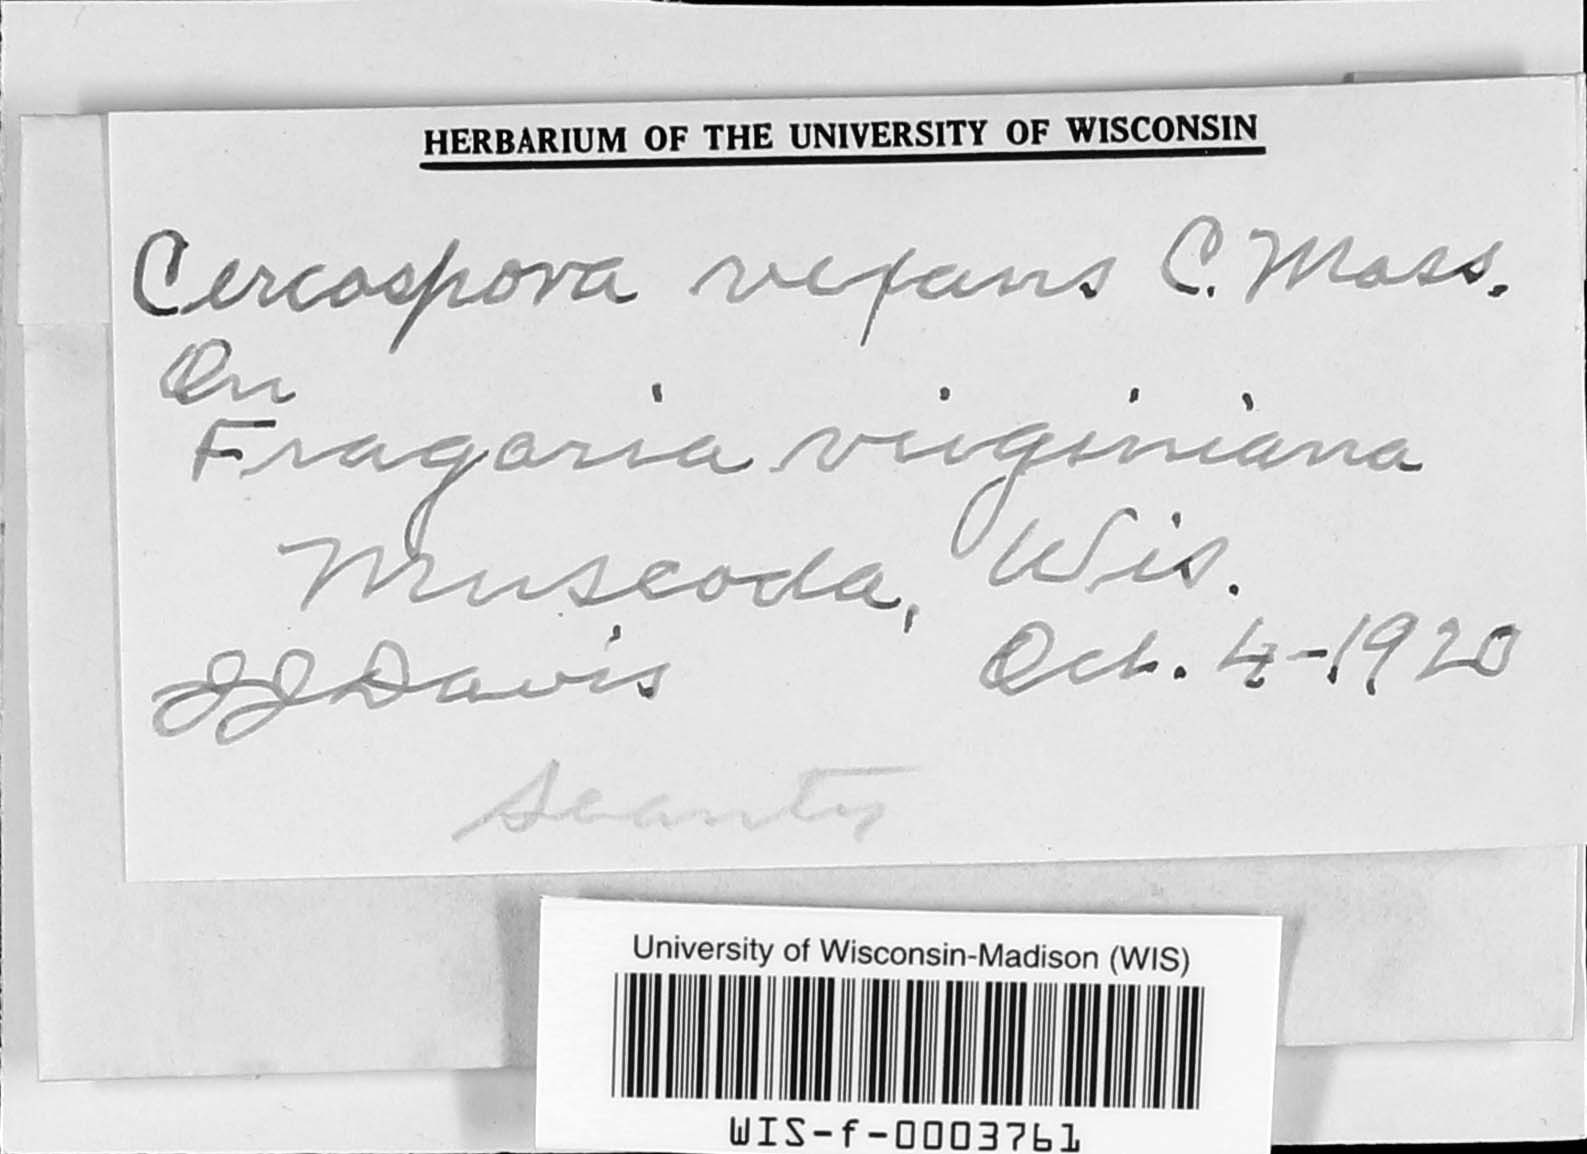 HERBARIUM OF THE UNIVERSITY OF WISCONSIN
Cercospora vexans C. Mass.
On
Fragaria virginiana
Muscoda, Wis.
JJDavis Oct. 4-1920
Scanty
University of Wisconsin-Madison (WIS)
WIS-f-0003761